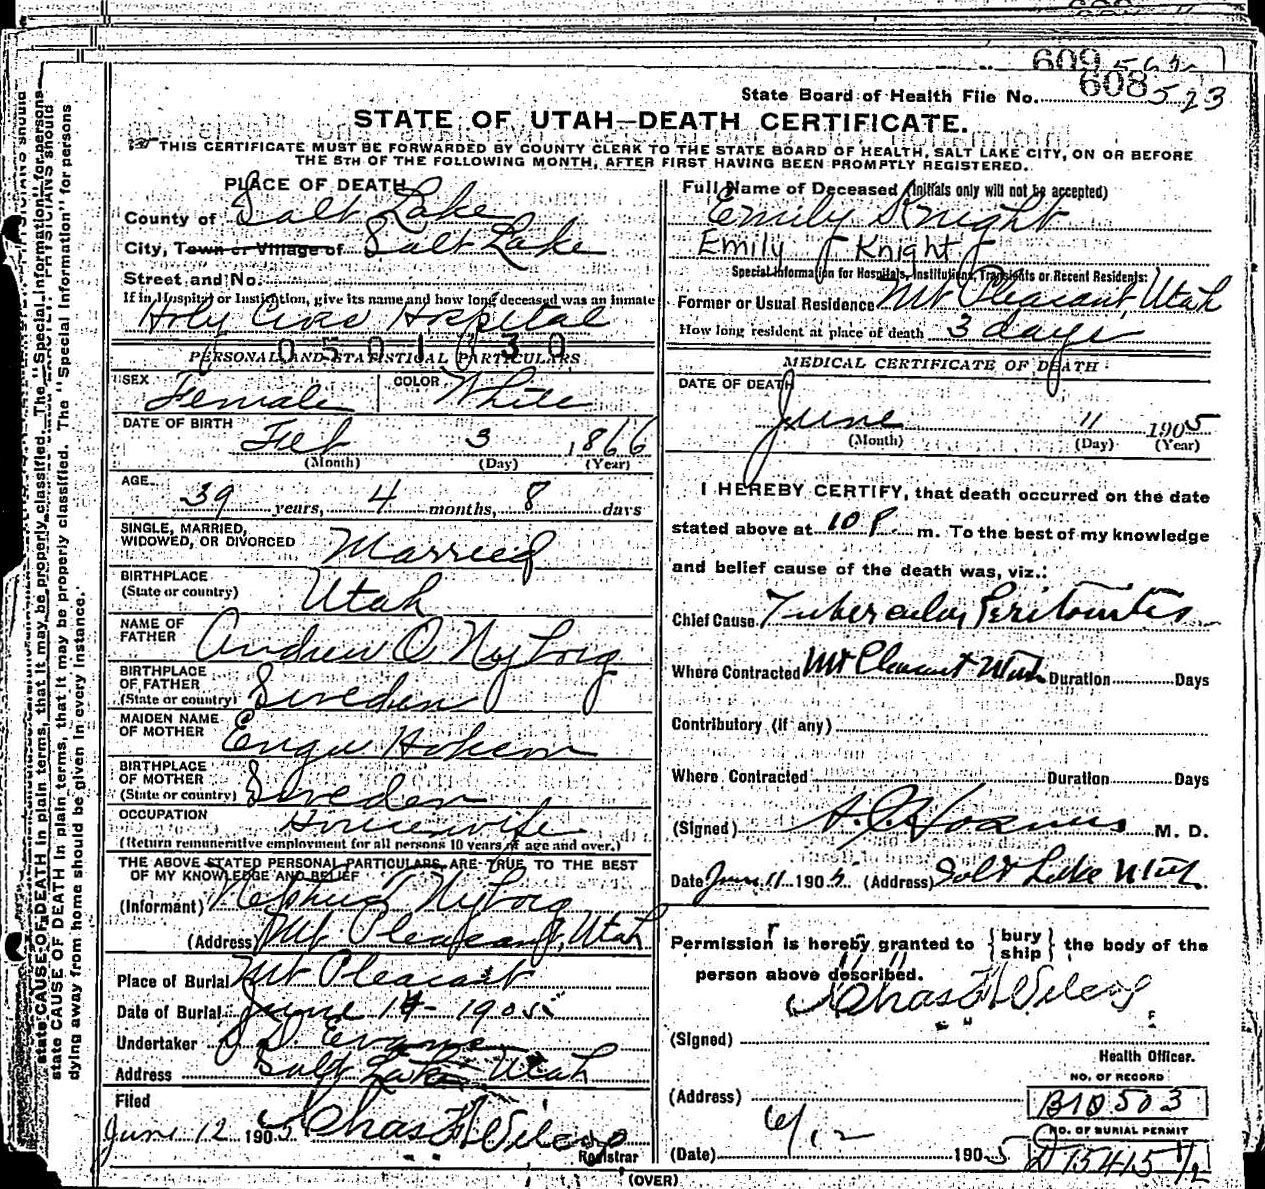 609
State Board of Health File No. 608 523
STATE OF UTAH—DEATH CERTIFICATE.
THIS CERTIFICATE MUST BE FORWARDED BY COUNTY CLERK TO THE STATE BOARD OF HEALTH, SALT LAKE CITY, ON OR BEFORE
THE 5TH OF THE FOLLOWING MONTH, AFTER FIRST HAVING BEEN PROMPTLY REGISTERED.
PLACE OF DEATH
County of Salt Lake
City, Town or Village of Salt Lake
Street and No.
If in Hospital or Institution, give its name and how long deceased was an inmate
Holy Cross Hospital
0501630
PERSONAL AND STATISTICAL PARTICULARS
SEX Female COLOR White
DATE OF BIRTH Feb 3 1866
(Month) (Day) (Year)
AGE 39 years, 4 months, 8 days
SINGLE, MARRIED,
WIDOWED, OR DIVORCED Married
BIRTHPLACE
(State or country) Utah
NAME OF
FATHER Andrew O Nyborg
BIRTHPLACE
OF FATHER
(State or country) Sweden
MAIDEN NAME
OF MOTHER
BIRTHPLACE
OF MOTHER
(State or country) Sweden
OCCUPATION Housewife
(Return remunerative employment for all persons 10 years of age and over.)
THE ABOVE STATED PERSONAL PARTICULARS ARE TRUE TO THE BEST
OF MY KNOWLEDGE AND BELIEF
(Informant) Nyborg
(Address) Mt Pleasant, Utah
Place of Burial Mt Pleasant
Date of Burial June 14 - 1905
Undertaker Evans
Address Salt Lake Utah
Filed
June 12 1905 Chas F Wilcox
Registrar
Full Name of Deceased (Initials only will not be accepted)
Emily Knight
Emily J Knight
Special Information for Hospitals, Institutions, Transients or Recent Residents:
Former or Usual Residence Mt Pleasant, Utah
How long resident at place of death 3 days
MEDICAL CERTIFICATE OF DEATH
DATE OF DEATH
June 11 1905
(Month) (Day) (Year)
I HEREBY CERTIFY, that death occurred on the date
stated above at 10 P. m. To the best of my knowledge
and belief cause of the death was, viz.:
Chief Cause Tubercular Peritonitis
Where Contracted Mt Pleasant Utah Duration Days
Contributory (if any)
Where Contracted Duration Days
(Signed) M. D.
Date June 11 1905 (Address) Salt Lake Utah
Permission is hereby granted to {bury ship} the body of the
person above described.
Chas F Wilcox
(Signed)
Health Officer.
NO. OF RECORD
(Address) B10503
NO. OF BURIAL PERMIT
(Date) 6/12 1905 D15415 1/2
(OVER)
state CAUSE OF DEATH in plain terms, that it may be properly classified. The "Special Information" for persons
dying away from home should be given in every instance.